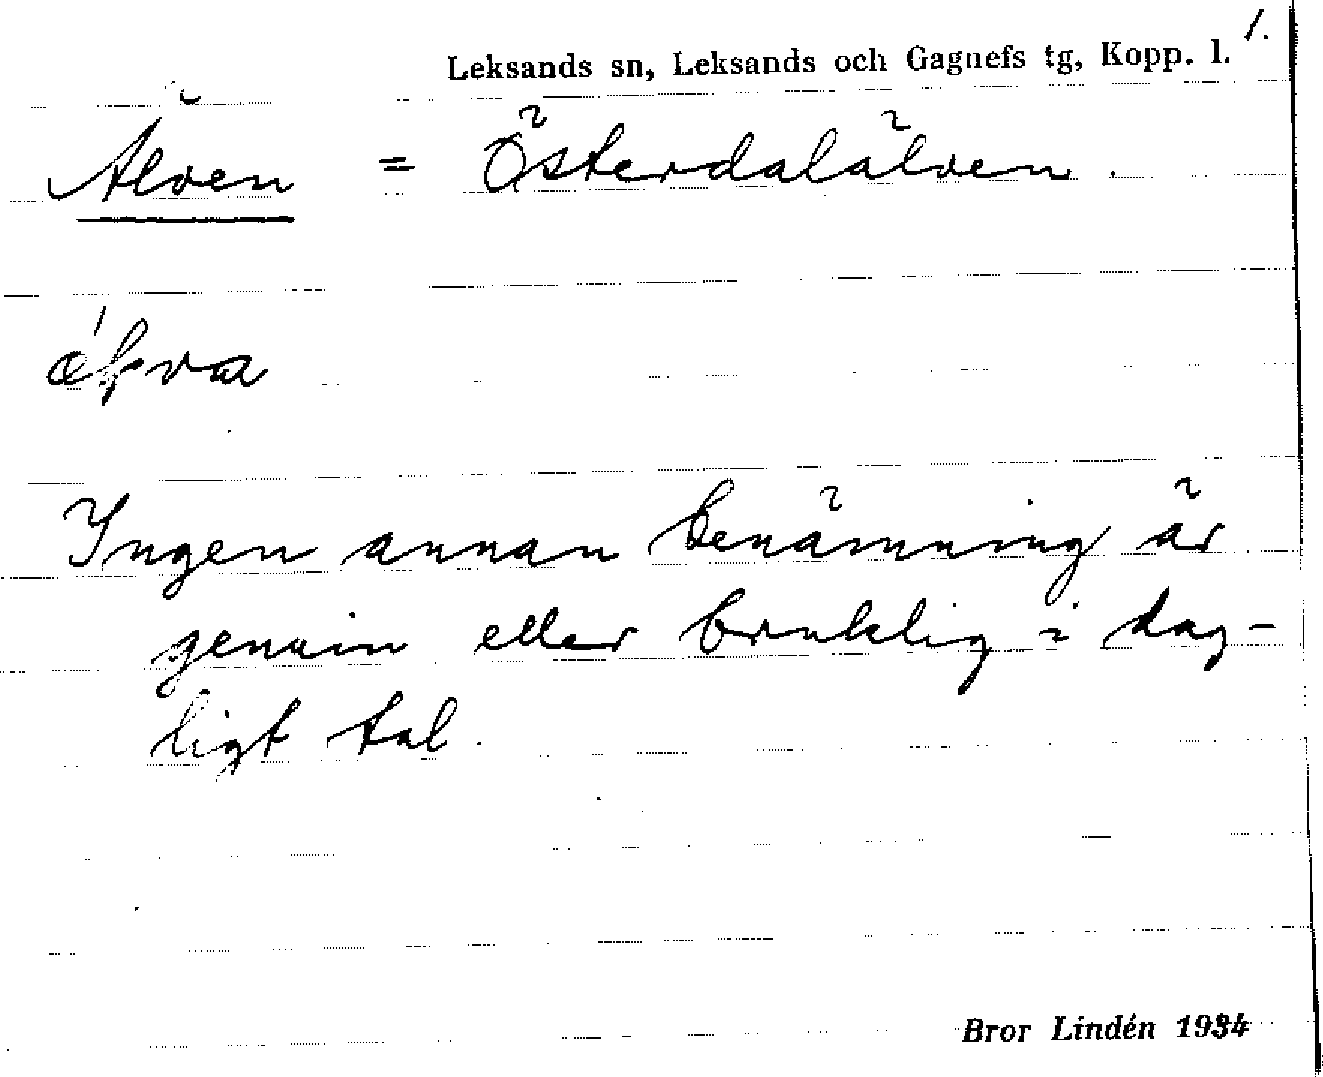 1.
Leksands sn, Leksands och Gagnefs tg, Kopp. l.
Älven = Österdalälven.
Ingen annan benämning är
genuin eller bruklig i dag-
ligt tal.
Bror Lindén 1934